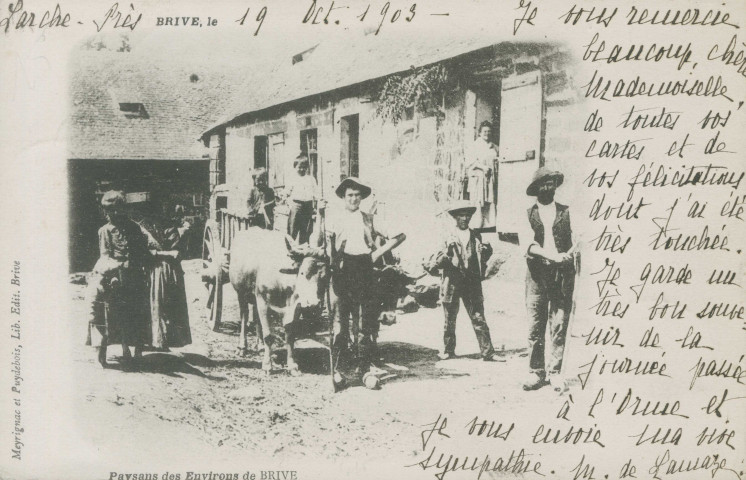 Larche - Près BRIVE, le 19 Oct. 1903 -
Je vous remercie
beaucoup, chère
Mademoiselle,
de toutes vos
cartes et de
vos félicitations
dont j'ai été
très touchée.
Je garde un
très bon souve-
nir de la
journée passée
à l'Orme et
je vous envoie ma vive
sympathie. M. de Lamaze.
Meyrignac et Puydebois, Lib. Edit. Brive
Paysans des Environs de BRIVE